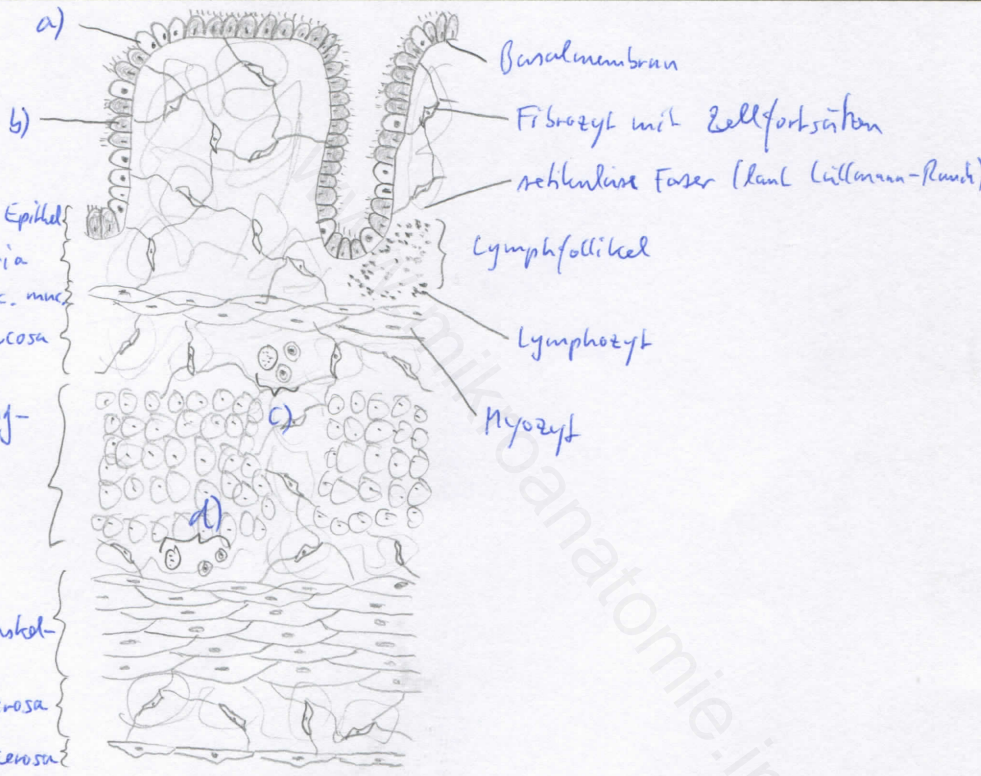 a)
b)
Epithel
ia
c. muc.
cosa
g-
uskel-
rosa
serosa
c)
d)
Basalmembran
Fibrozyt mit Zellfortsätzen
retikuläre Faser (laut Lüllmann-Rauch)
Lymphfollikel
Lymphozyt
Myozyt
www.mikroanatomie.i